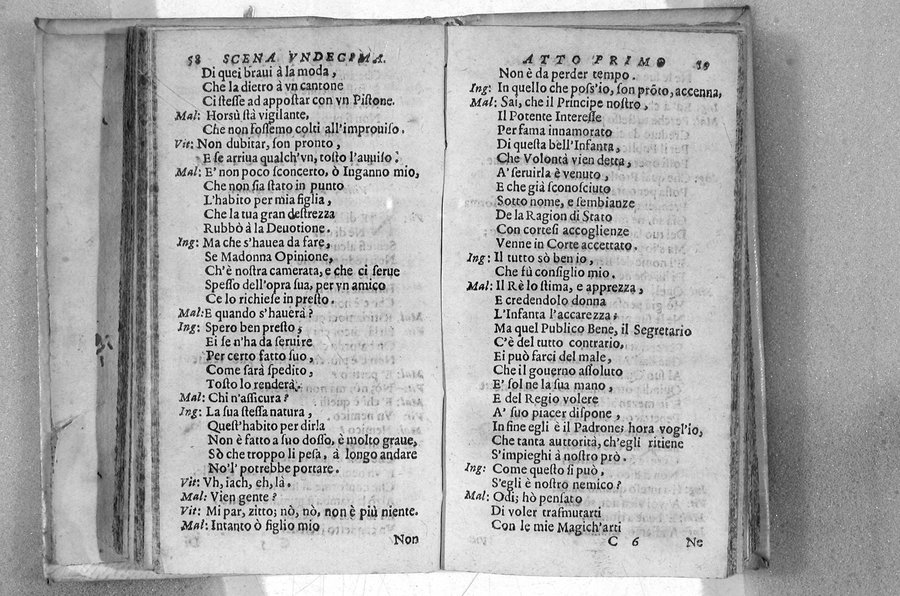 58 SCENA VNDECIMA.
Di quei braui à la moda,
Che la dietro à vn cantone
Ci stesse ad appostar con vn Pistone.
Mal: Horsù stà vigilante,
Che non fossemo colti all'improuiso.
Vit: Non dubitar, son pronto,
E se arriua qualch'vn, tosto l'auuiso.
Mal: E' non poco sconcerto, ò Inganno mio,
Che non sia stato in punto
L'habito per mia figlia,
Che la tua gran destrezza
Rubbò à la Deuotione.
Ing: Ma che s'hauea da fare,
Se Madonna Opinione,
Ch'è nostra camerata, e che ci serue
Spesso dell'opra sua, per vn amico
Ce lo richiese in presto.
Mal: E quando s'hauerà?
Ing: Spero ben presto;
Ei se n'ha da seruire
Per certo fatto suo,
Come sarà spedito,
Tosto lo renderà.
Mal: Chi n'assicura?
Ing: La sua stessa natura,
Quest'habito per dirla
Non è fatto a suo dosso, è molto graue,
Sò che troppo li pesa, à longo andare
No'l' potrebbe portare.
Vit: Vh, iach, eh, là.
Mal: Vien gente?
Vit: Mi par, zitto; nò, nò, non è più niente.
Mal: Intanto ò figlio mio
Non
ATTO PRIMO 59
Non è da perder tempo.
Ing: In quello che poss'io, son prōto, accenna,
Mal: Sai, che il Principe nostro,
Il Potente Interesse
Per fama innamorato
Di questa bell'Infanta,
Che Volontà vien detta,
A' seruirla è venuto,
E che già sconosciuto
Sotto nome, e sembianze
De la Ragion di Stato
Con cortesi accoglienze
Venne in Corte accettato.
Ing: Il tutto sò ben io,
Che fù consiglio mio.
Mal: Il Rè lo stima, e apprezza,
E credendolo donna
L'Infanta l'accarezza;
Ma quel Publico Bene, il Segretario
C'è del tutto contrario,
Ei può farci del male,
Che il gouerno assoluto
E' sol ne la sua mano,
E del Regio volere
A' suo piacer dispone,
In fine egli è il Padrone; hora vogl'io,
Che tanta auttorità, ch'egli ritiene
S'impieghi à nostro prò.
Ing: Come questo si può,
S'egli è nostro nemico?
Mal: Odi; hò pensato
Di voler trasmutarti
Con le mie Magich'arti
C 6 Ne